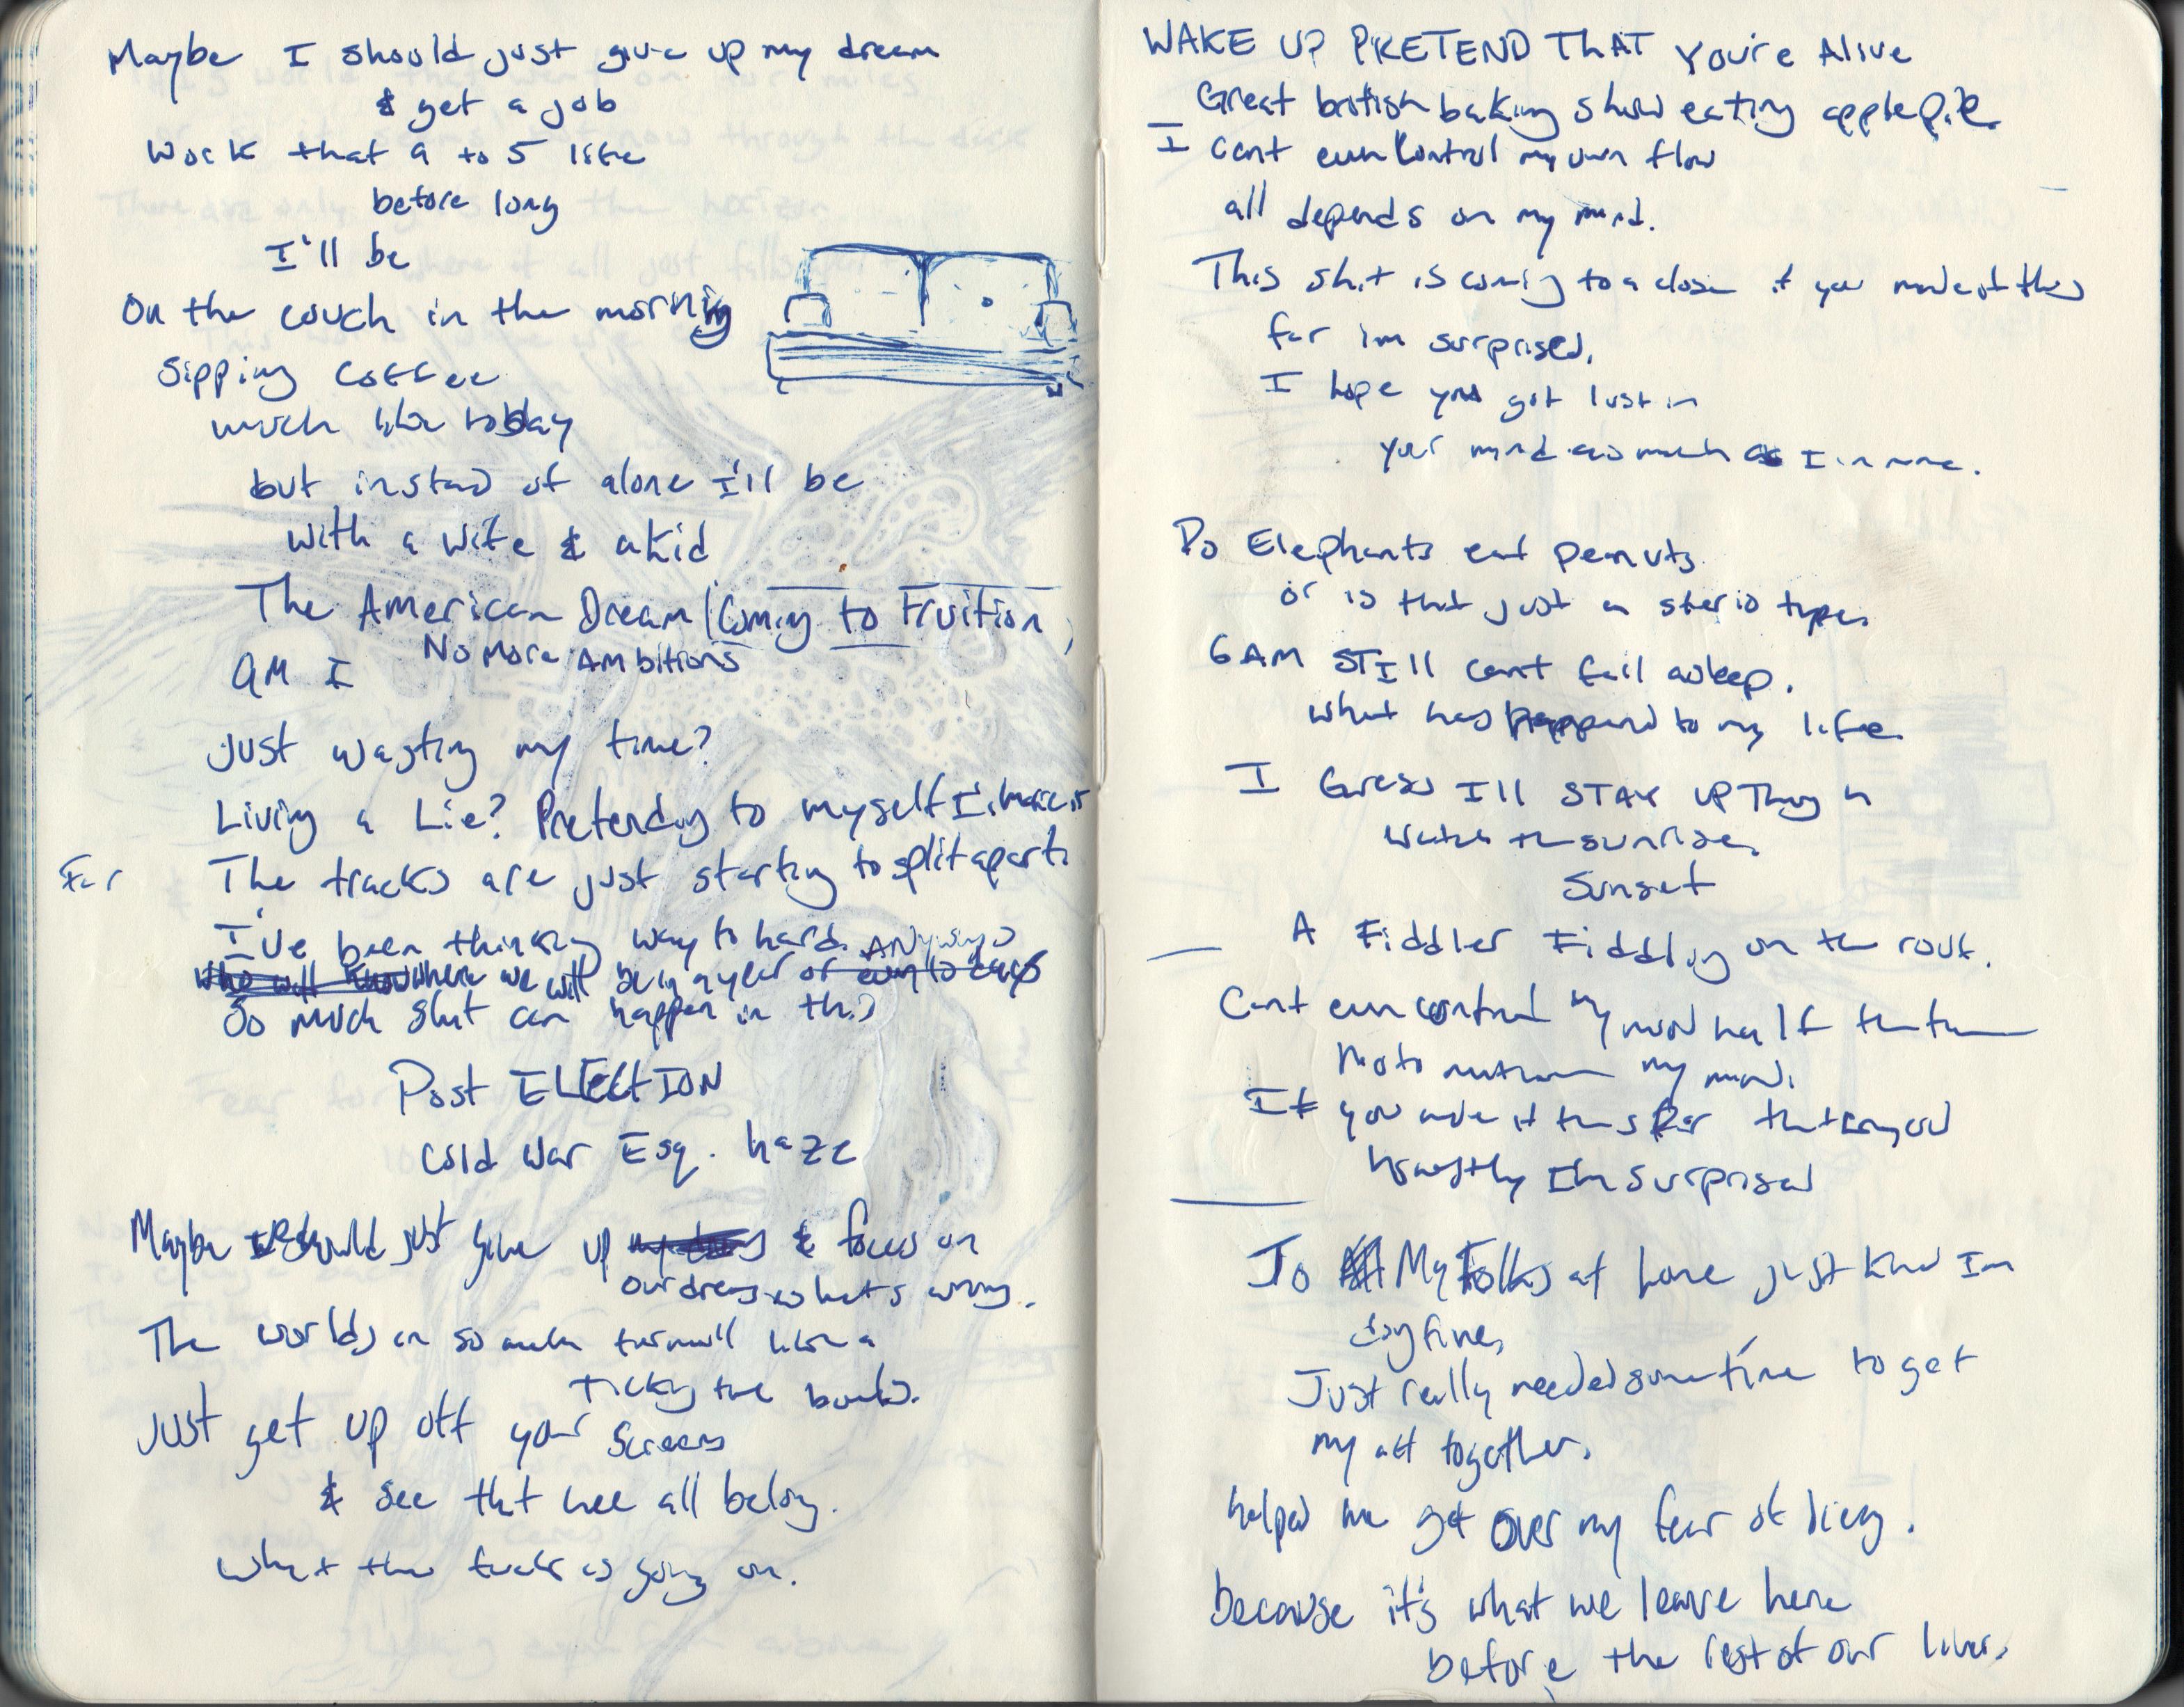 Maybe I should just give up my dream
& get a job
Work that 9 to 5 life
before long
I'll be
On the couch in the morning
Sipping coffee
much like today
but instead of alone I'll be
with a wife & a kid
The American Dream (Coming to Fruition)
No More Ambitions
am I
Just wasting my time?
Living a Lie? Pretending to myself I'll make it
Far
The tracks are just starting to split apart
I've been thinking way to hard. ANyways
who will know where we will be in a year or even to days
So much shit can happen in this
Post ELECTION
Cold War Esq. haze
Maybe we should just give up & focus on
our dreams whats wrong.
The worlds in so much turmoil like a
Ticking time bomb.
Just get up off your screens
& see tht wee all belong.
What the fuck is going on.
WAKE UP PRETEND THAT You're Alive
Great british baking show eating apple pie.
I cant even Control my own flow
all depends on my mind.
This shit is coming to a close if you made it this
far im surprised.
I hope you got lost in
your mind as much as I in mine.
Do Elephants eat peanuts
or is that just a sterio type.
6 AM STIll cant fall asleep.
what has happend to my life
I Guess I'll STAY UP Thing n
watch the sunrise.
Sunset
A Fiddler Fiddling on the roof.
Cant even control my mind half the time
my mind.
If you made it this far
honestly Im Surprised
To My Folks at home just know Im
doing fine,
Just really needed some time to get
my act together.
helped me get over my fear of dieng.
because it's what we leave here
before the rest of our lives.